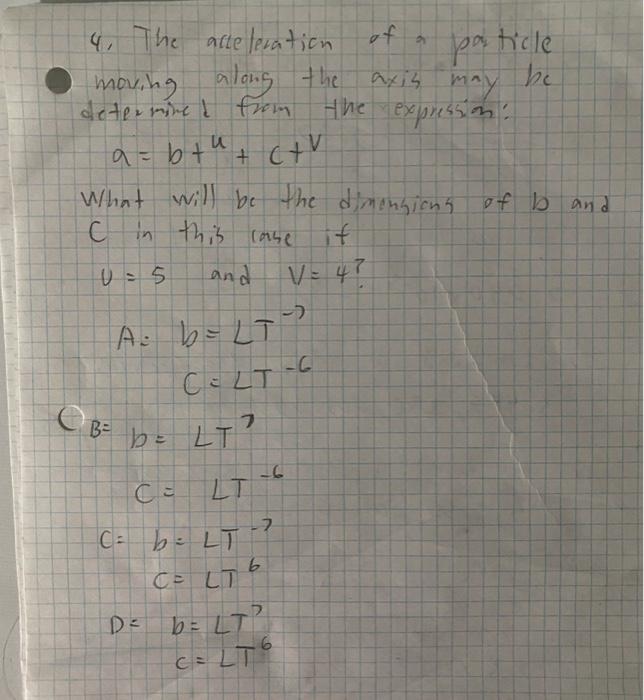 4. The acceleration of a particle
moving along the axis may be
determined from the expression:
a = bt^u + ct^v
What will be the dimensions of b and
C in this case if
U = 5 and V = 4?
A= b = LT^-7
C = LT^-6
B= b = LT^7
C = LT^-6
C= b = LT^-7
C = LT^6
D= b = LT^7
c = LT^6